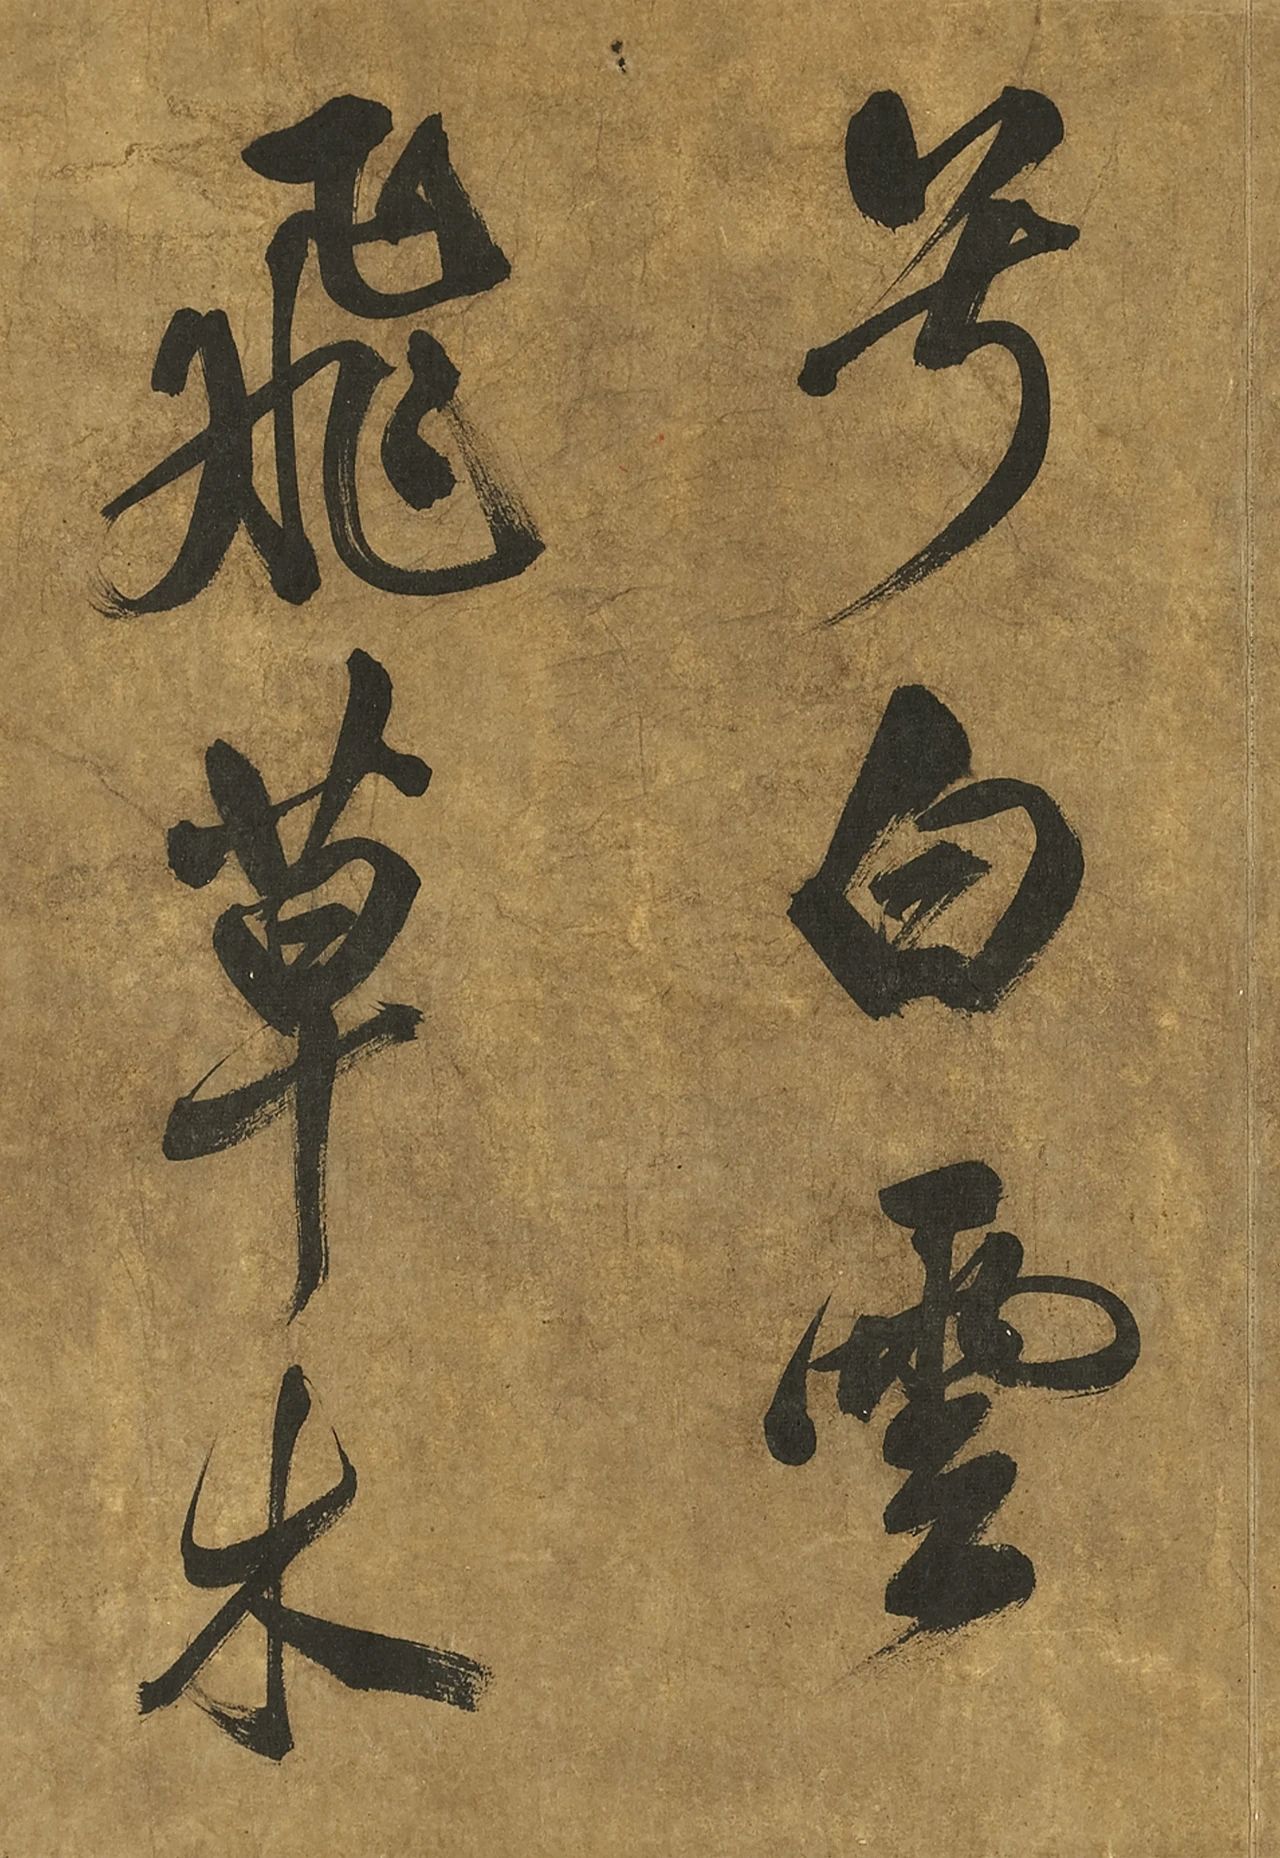 兮白雲
飛草木